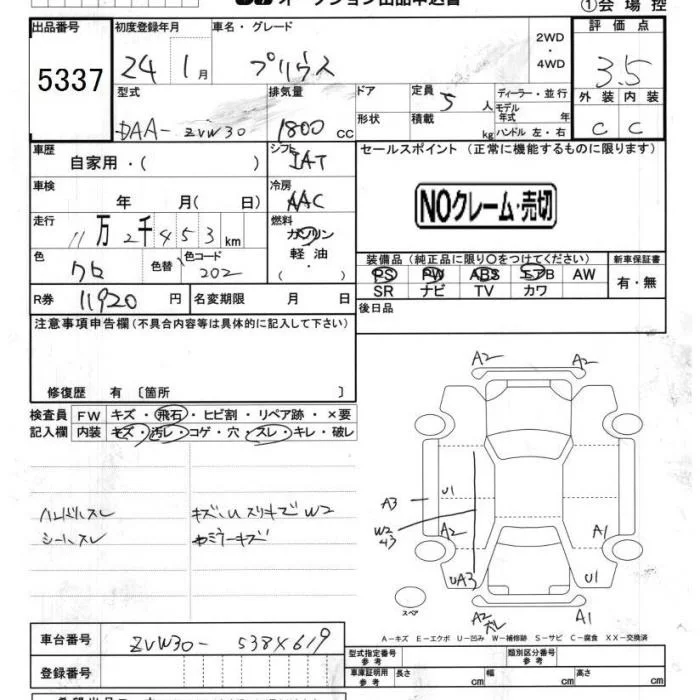 オークション出品申込書 ①会場控
出品番号 初度登録年月 車名・グレード 2WD・4WD 評価点
5337 24 1月 プリウス 3.5
型式 排気量 ドア 定員 5人 ディーラー・並行 外装 内装
DAA-ZVW30 1800 CC 形状 積載 kg モデル年式 年 ハンドル 左・右 C C
車歴 自家用・( ) シフト IAT セールスポイント (正常に機能するものに限ります)
車検 年 月( 日) 冷房 AAC NOクレーム・売切
走行 11万2千453km 燃料 ガソリン 軽油 ( ・ )
色 クロ 色替 色コード 202
装備品 (純正品に限り○をつけてください) 新車保証書
PS PW ABS エアB AW 有・無
SR ナビ TV カワ
R券 11920円 名変期限 月 日 後日品
注意事項申告欄 (不具合内容等は具体的に記入して下さい)
修復歴 有 〔箇所 〕
検査員記入欄 FW キズ・飛石・ヒビ割・リペア跡・×要
内装 キズ・汚レ・コゲ・穴・スレ・キレ・破レ
ハンドルスレ キズ、U スリキズ W2
シートスレ
A2 A2
A3 U1
W2 43 A2 A1
UA3 U1
スペア A2 A1
A-キズ E-エクボ U-凹み W-補修跡 S-サビ C-腐食 XX-交換済
車台番号 ZVW30-538X619
登録番号
型式指定番号 参考 類別区分番号 参考
車庫証明用 参考 長さ cm 幅 cm 高さ cm